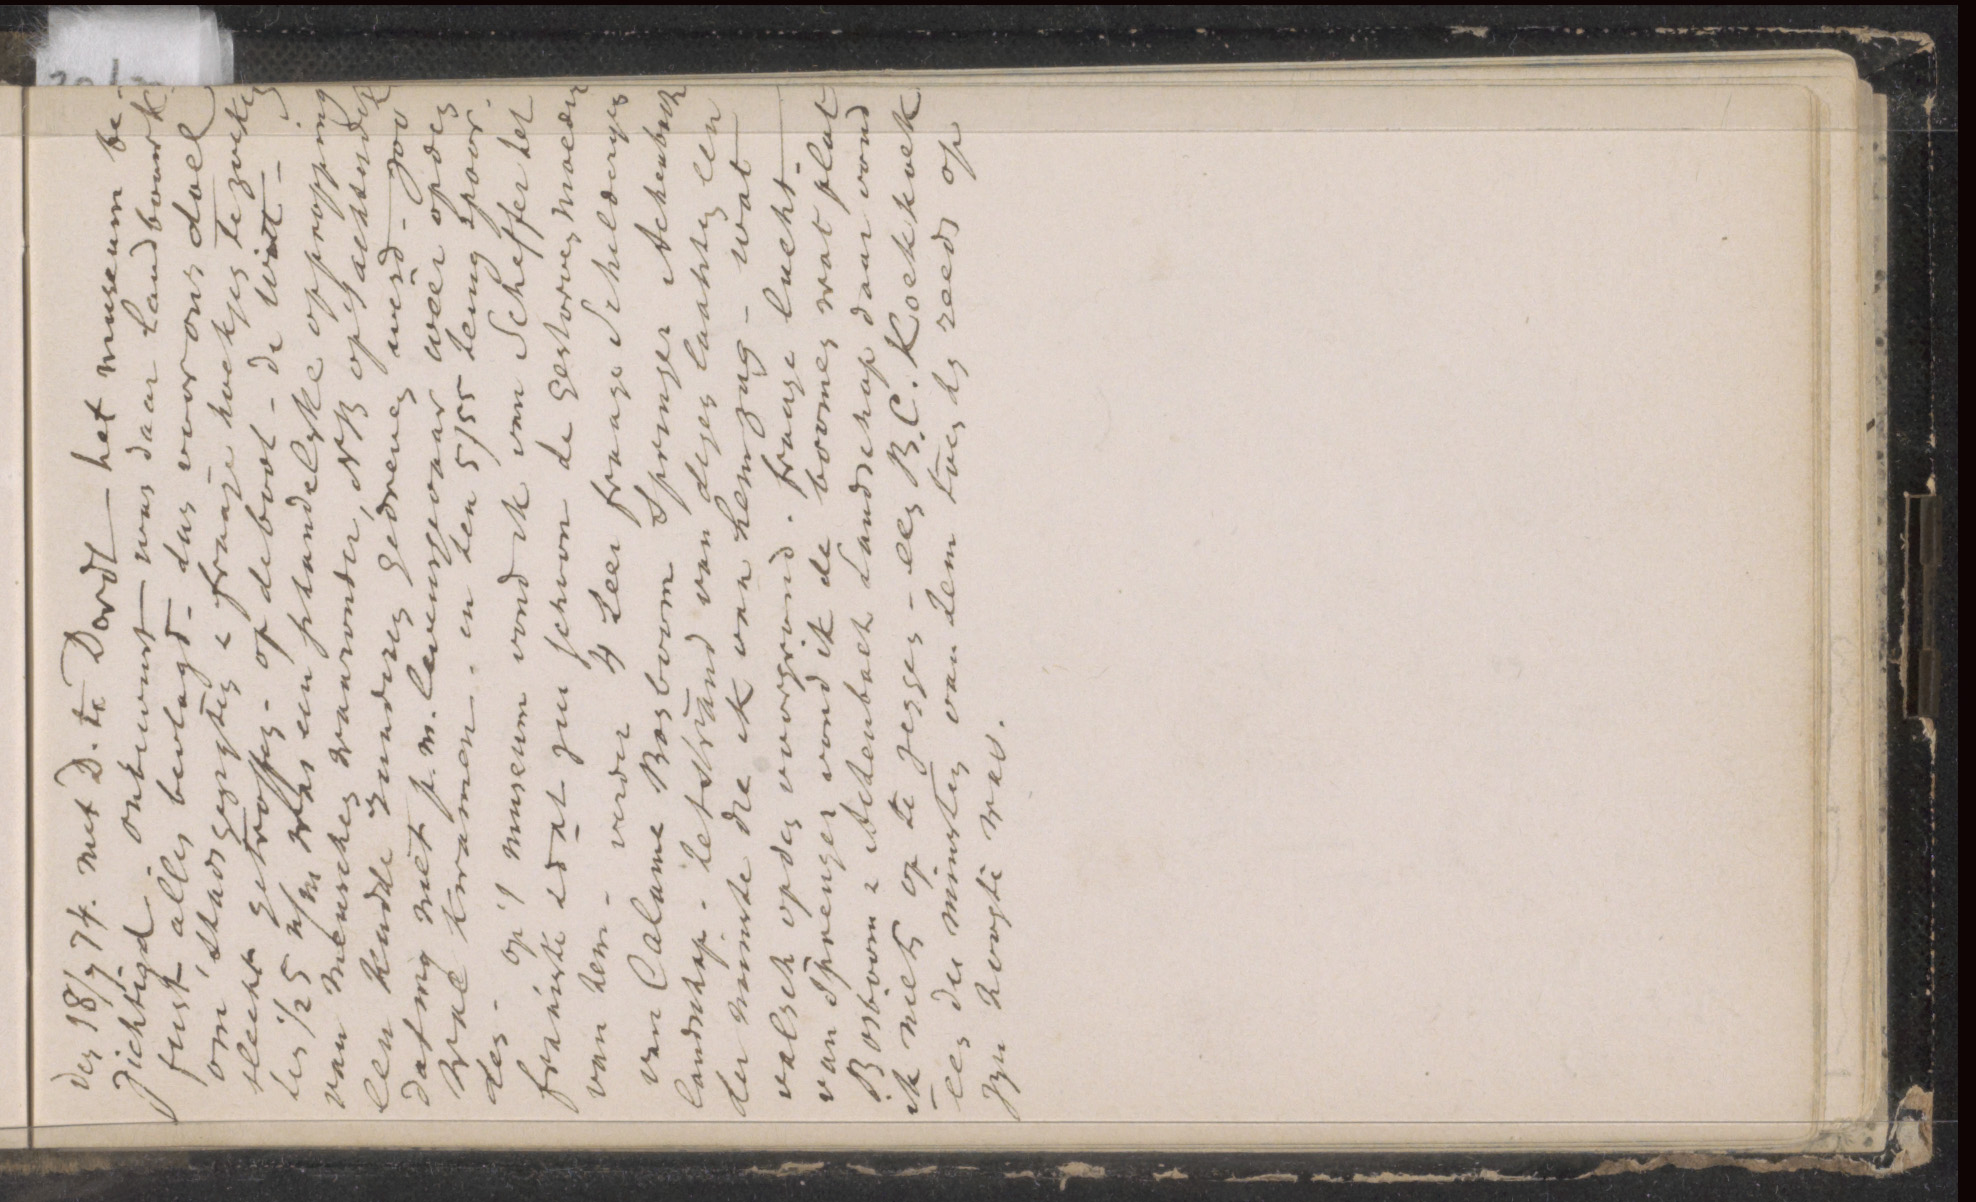 Den 18/7 74. met D. te Dordt – het museum be-
zichtigd. onbewust was daar landbouwk.
feest alles bevlagd – dus voor ons doel
om stadsgezigten & fraaije hoekjes te zoeken
slecht getroffen. op de boot – de Witt –
was een schandelyke opropping
van menschen waaronder, NB op ij achterdek
een kudde runderen gedreven werd – zoo
dat my niet p.m. levensgevaar weer op den
wal kwamen. en ten 5/55 terug spoor-
den – op 't museum vond ik van Scheffer het
fraaiste schoon de gestorven moeder
van hem – verder 4 zeer fraaije Schilderijen
van Calame Bosboom Sprenger Achenbach
landschap. het strand van dezen laatsten een
der minste die ik van hem zag – wat
valsch op den voorgrond. fraaije lucht –
van Sprenger vond ik de boomen wat plat
Bosboom & Achenbach Landschap daar vond
ik niets op te zeggen – een B.C. Koekkoek
een der minsten van hem toen hy reeds op
zyn hoogte was.